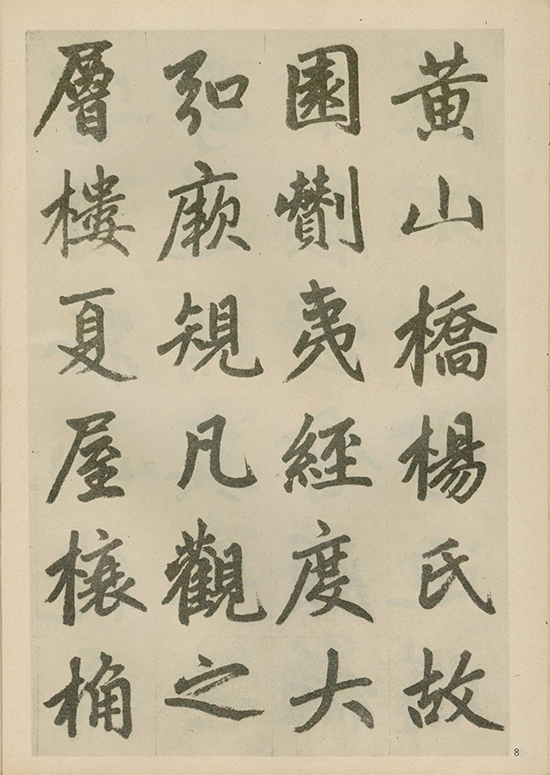 黄山橋楊氏故
園劗夷經度大
弘厥規凡觀之
層樓夏屋榱桷
8